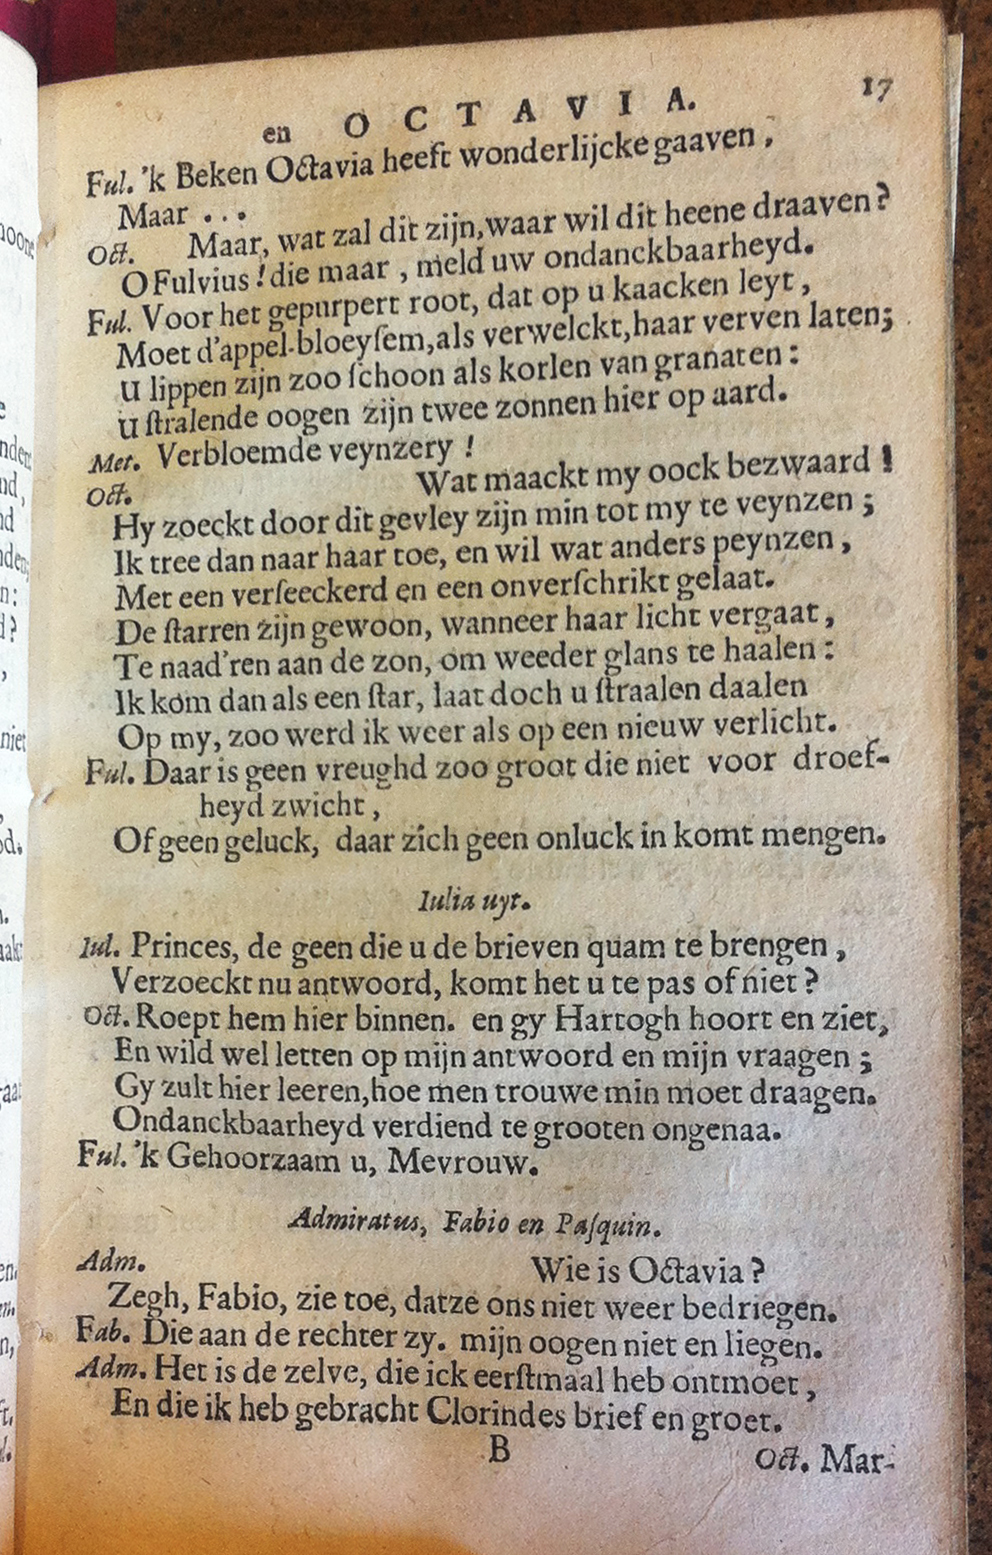 en OCTAVIA. 17
Ful. 'k Beken Octavia heeft wonderlijcke gaaven,
Maar ...
Oct. Maar, wat zal dit zijn, waar wil dit heene draaven?
O Fulvius! die maar, meld uw ondanckbaarheyd.
Ful. Voor het gepurpert root, dat op u kaacken leyt,
Moet d'appel-bloeysem, als verwelckt, haar verven laten;
U lippen zijn zoo ſchoon als korlen van granaten:
U ſtralende oogen zijn twee zonnen hier op aard.
Met. Verbloemde veynzery!
Oct. Wat maackt my oock bezwaard!
Hy zoeckt door dit gevley zijn min tot my te veynzen;
Ik tree dan naar haar toe, en wil wat anders peynzen,
Met een verſeeckerd en een onverſchrikt gelaat.
De ſtarren zijn gewoon, wanneer haar licht vergaat,
Te naad'ren aan de zon, om weeder glans te haalen:
Ik kom dan als een ſtar, laat doch u ſtraalen daalen
Op my, zoo werd ik weer als op een nieuw verlicht.
Ful. Daar is geen vreughd zoo groot die niet voor droef-
heyd zwicht,
Of geen geluck, daar zich geen onluck in komt mengen.
Iulia uyt.
Iul. Princes, de geen die u de brieven quam te brengen,
Verzoeckt nu antwoord, komt het u te pas of niet?
Oct. Roept hem hier binnen. en gy Hartogh hoort en ziet,
En wild wel letten op mijn antwoord en mijn vraagen;
Gy zult hier leeren, hoe men trouwe min moet draagen.
Ondanckbaarheyd verdiend te grooten ongenaa.
Ful. 'k Gehoorzaam u, Mevrouw.
Admiratus, Fabio en Paſquin.
Adm. Wie is Octavia?
Zegh, Fabio, zie toe, datze ons niet weer bedriegen.
Fab. Die aan de rechter zy. mijn oogen niet en liegen.
Adm. Het is de zelve, die ick eerſtmaal heb ontmoet,
En die ik heb gebracht Clorindes brief en groet.
B
Oct. Mar-